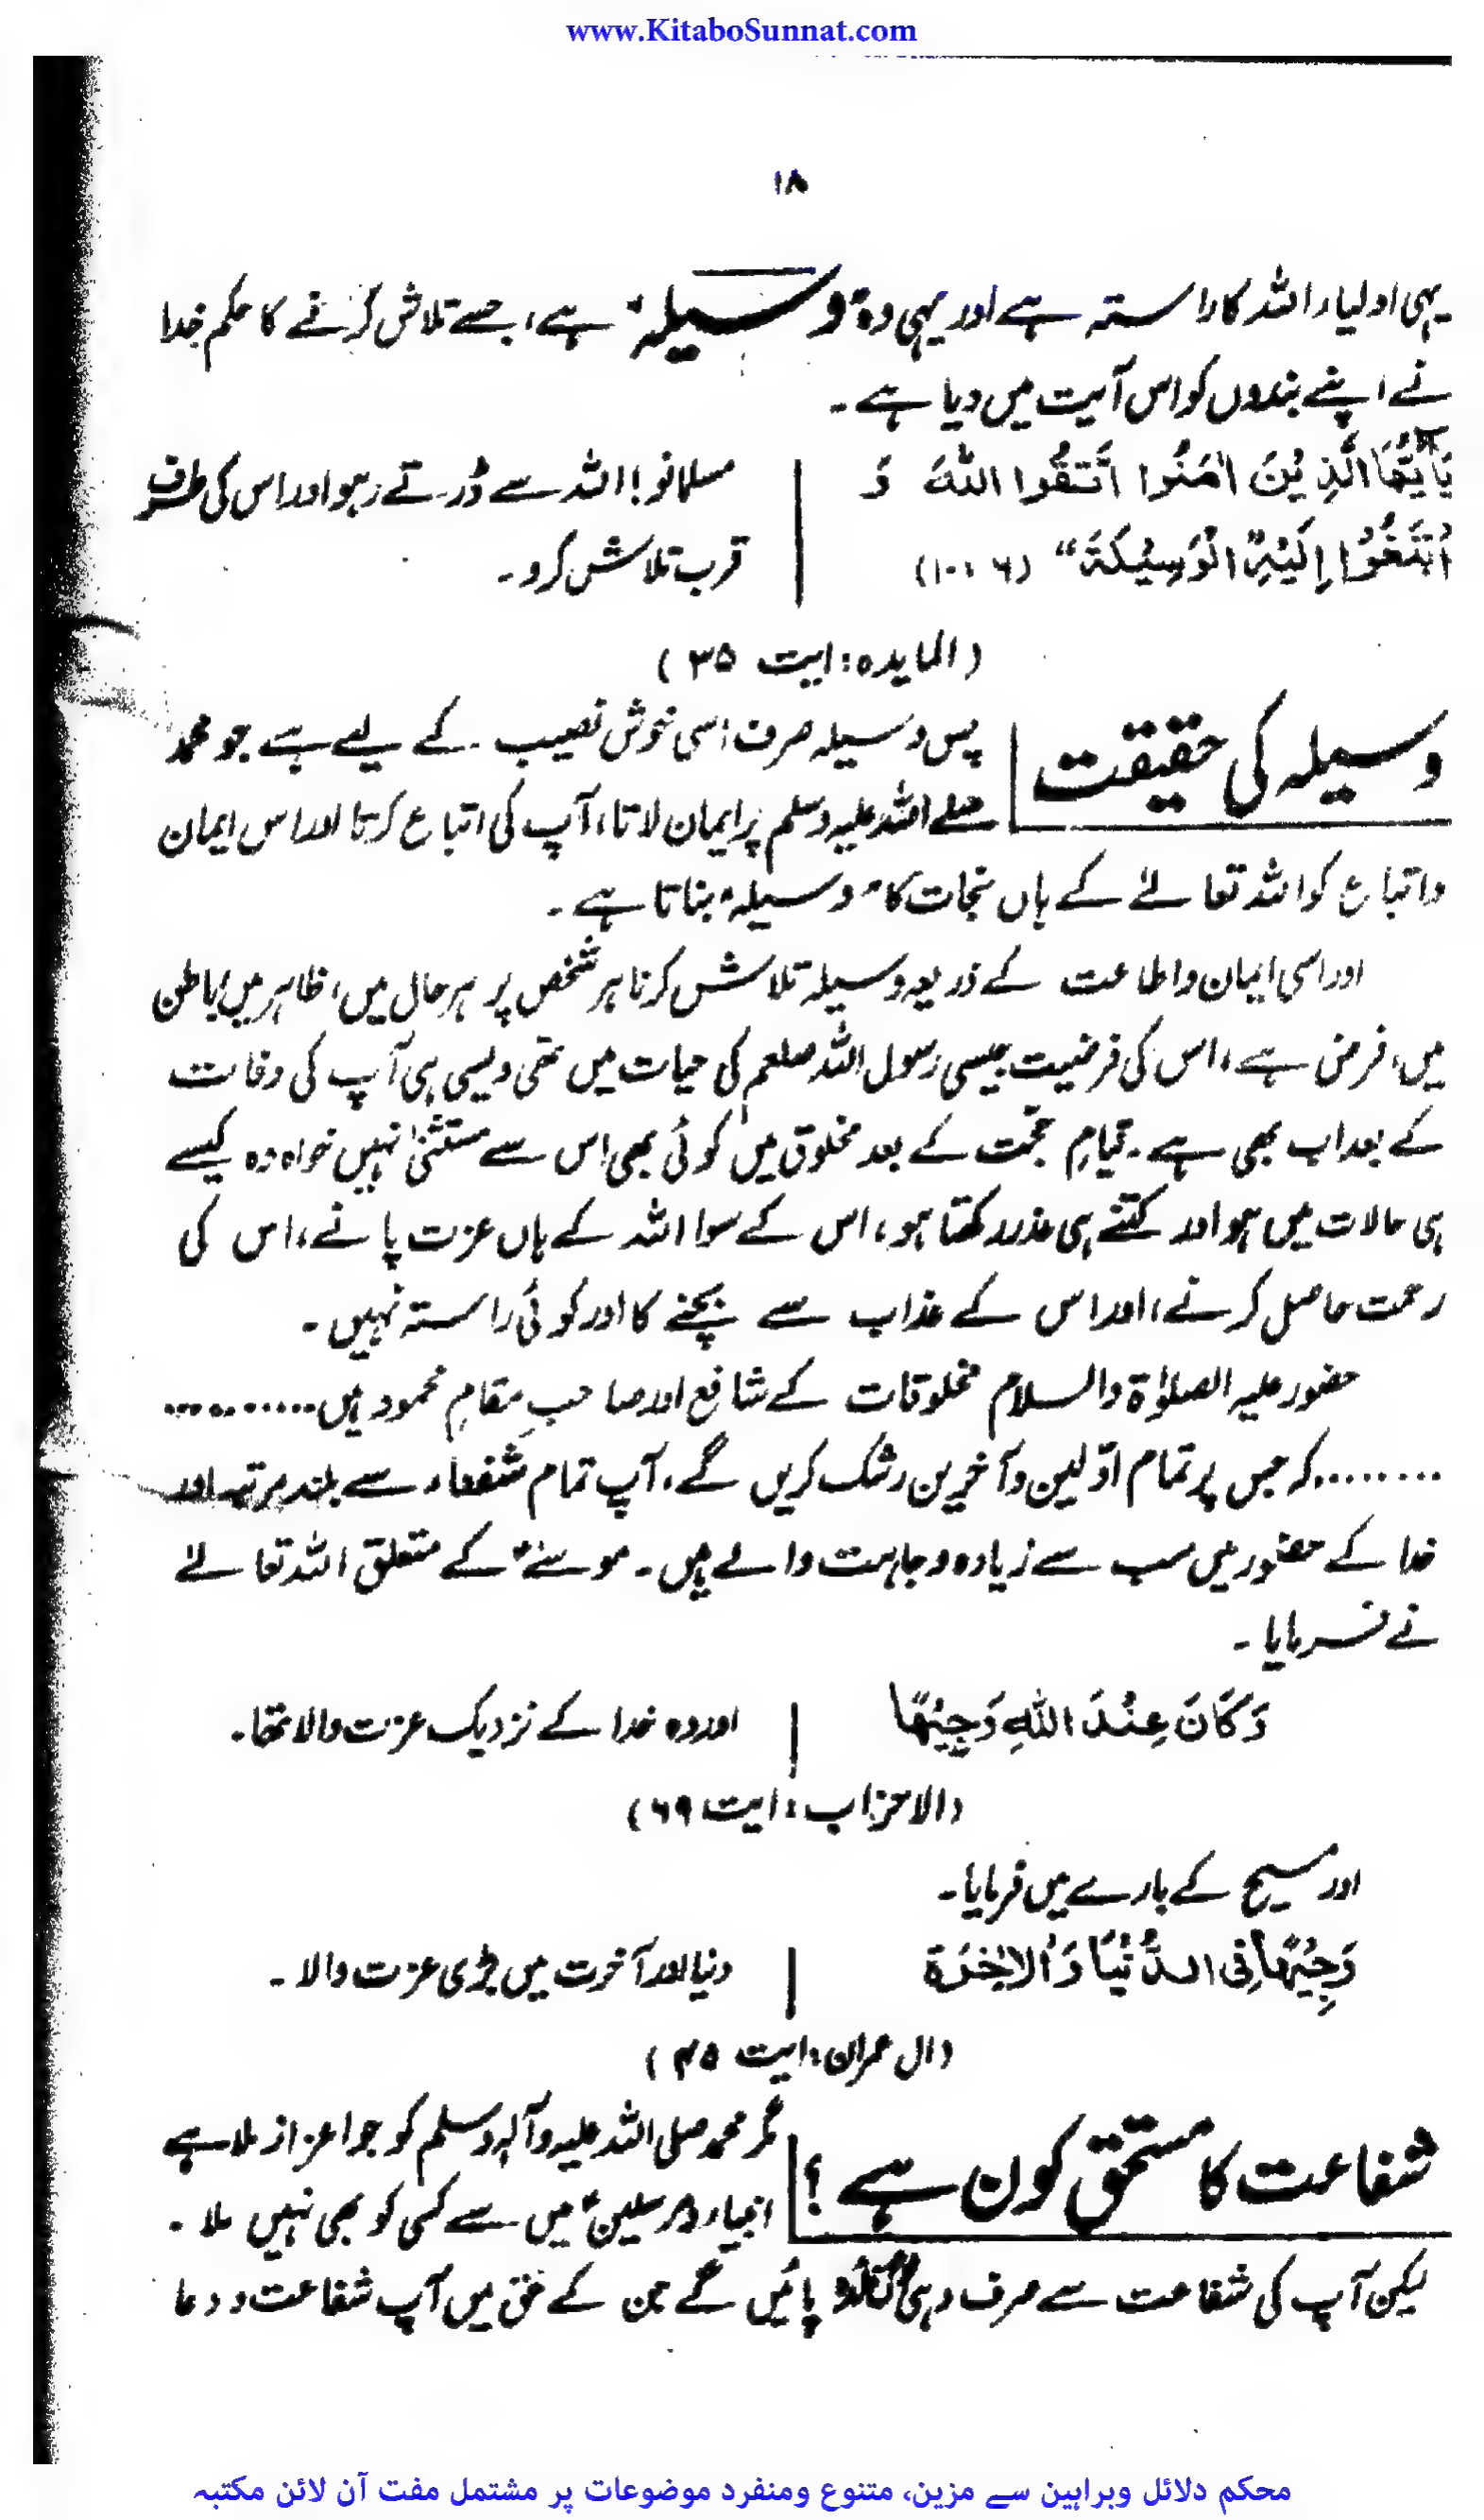 www.KitaboSunnat.com
۱۸
یہی اولیاء اللہ کا راستہ ہے اور یہی وہ "وسیلہ" ہے، جسے تلاش کرنے کا حکم خدا
نے اپنے بندوں کو اس آیت میں دیا ہے۔
یٰۤاَیُّهَا الَّذِیْنَ اٰمَنُوا اتَّقُوا اللّٰهَ وَ
مسلمانو! اللہ سے ڈرتے رہو اور اس کی طرف
ابْتَغُوْا اِلَیْهِ الْوَسِیْلَةَ" (۶ : ۱۰)
قرب تلاش کرو۔
(المایدہ: ایت ۳۵)
وسیلہ کی حقیقت
پس وسیلہ صرف اسی خوش نصیب کے لیے ہے جو محمد
صلے اللہ علیہ وسلم پر ایمان لاتا، آپ کی اتباع کرتا اور اس ایمان
واتباع کو اللہ تعالےٰ کے ہاں نجات کا "وسیلہ" بناتا ہے۔
اور اسی ایمان واطاعت کے ذریعہ وسیلہ تلاش کرنا ہر شخص پر ہر حال میں، ظاہر میں باطن
میں، فرض ہے، اس کی فرضیت جیسی رسول اللہ صلعم کی حیات میں تھی ویسی ہی آپ کی وفات
کے بعد اب بھی ہے۔ قیامِ حجت کے بعد مخلوق میں کوئی بھی اس سے مستثنیٰ نہیں خواہ وہ کیسے
ہی حالات میں ہو اور کتنے ہی عذر رکھتا ہو، اس کے سوا اللہ کے ہاں عزت پانے، اس کی
رحمت حاصل کرنے، اور اس کے عذاب سے بچنے کا اور کوئی راستہ نہیں۔
حضور علیہ الصلوٰۃ والسلام مخلوقات کے شافع اور صاحبِ مقامِ محمود ہیں..........
........کہ جس پر تمام اوّلین وآخرین رشک کریں گے، آپ تمام شفعاء سے بلند مرتبہ اور
خدا کے حضور میں سب سے زیادہ وجاہت والے ہیں۔ موسےٰؑ کے متعلق اللہ تعالےٰ
نے فرمایا۔
وَكَانَ عِنْدَ اللّٰهِ وَجِیْهًا
اور وہ خدا کے نزدیک عزت والا تھا۔
(الاحزاب: ایت ۶۹)
اور مسیح کے بارے میں فرمایا۔
وَجِیْهًا فِی الدُّنْیَا وَالْاٰخِرَةِ
دنیا اور آخرت میں بڑی عزت والا۔
(ال عمران: ایت ۴۵)
شفاعت کا مستحق کون ہے؟
مگر محمد صلی اللہ علیہ وآلہ وسلم کو جو اعزاز ملا ہے
انبیاء ومرسلینؑ میں سے کسی کو بھی نہیں ملا۔
لیکن آپ کی شفاعت سے صرف وہی پائیں گے جن کے حق میں آپ شفاعت و دعا
محکم دلائل وبراہین سے مزین، متنوع ومنفرد موضوعات پر مشتمل مفت آن لائن مکتبہ